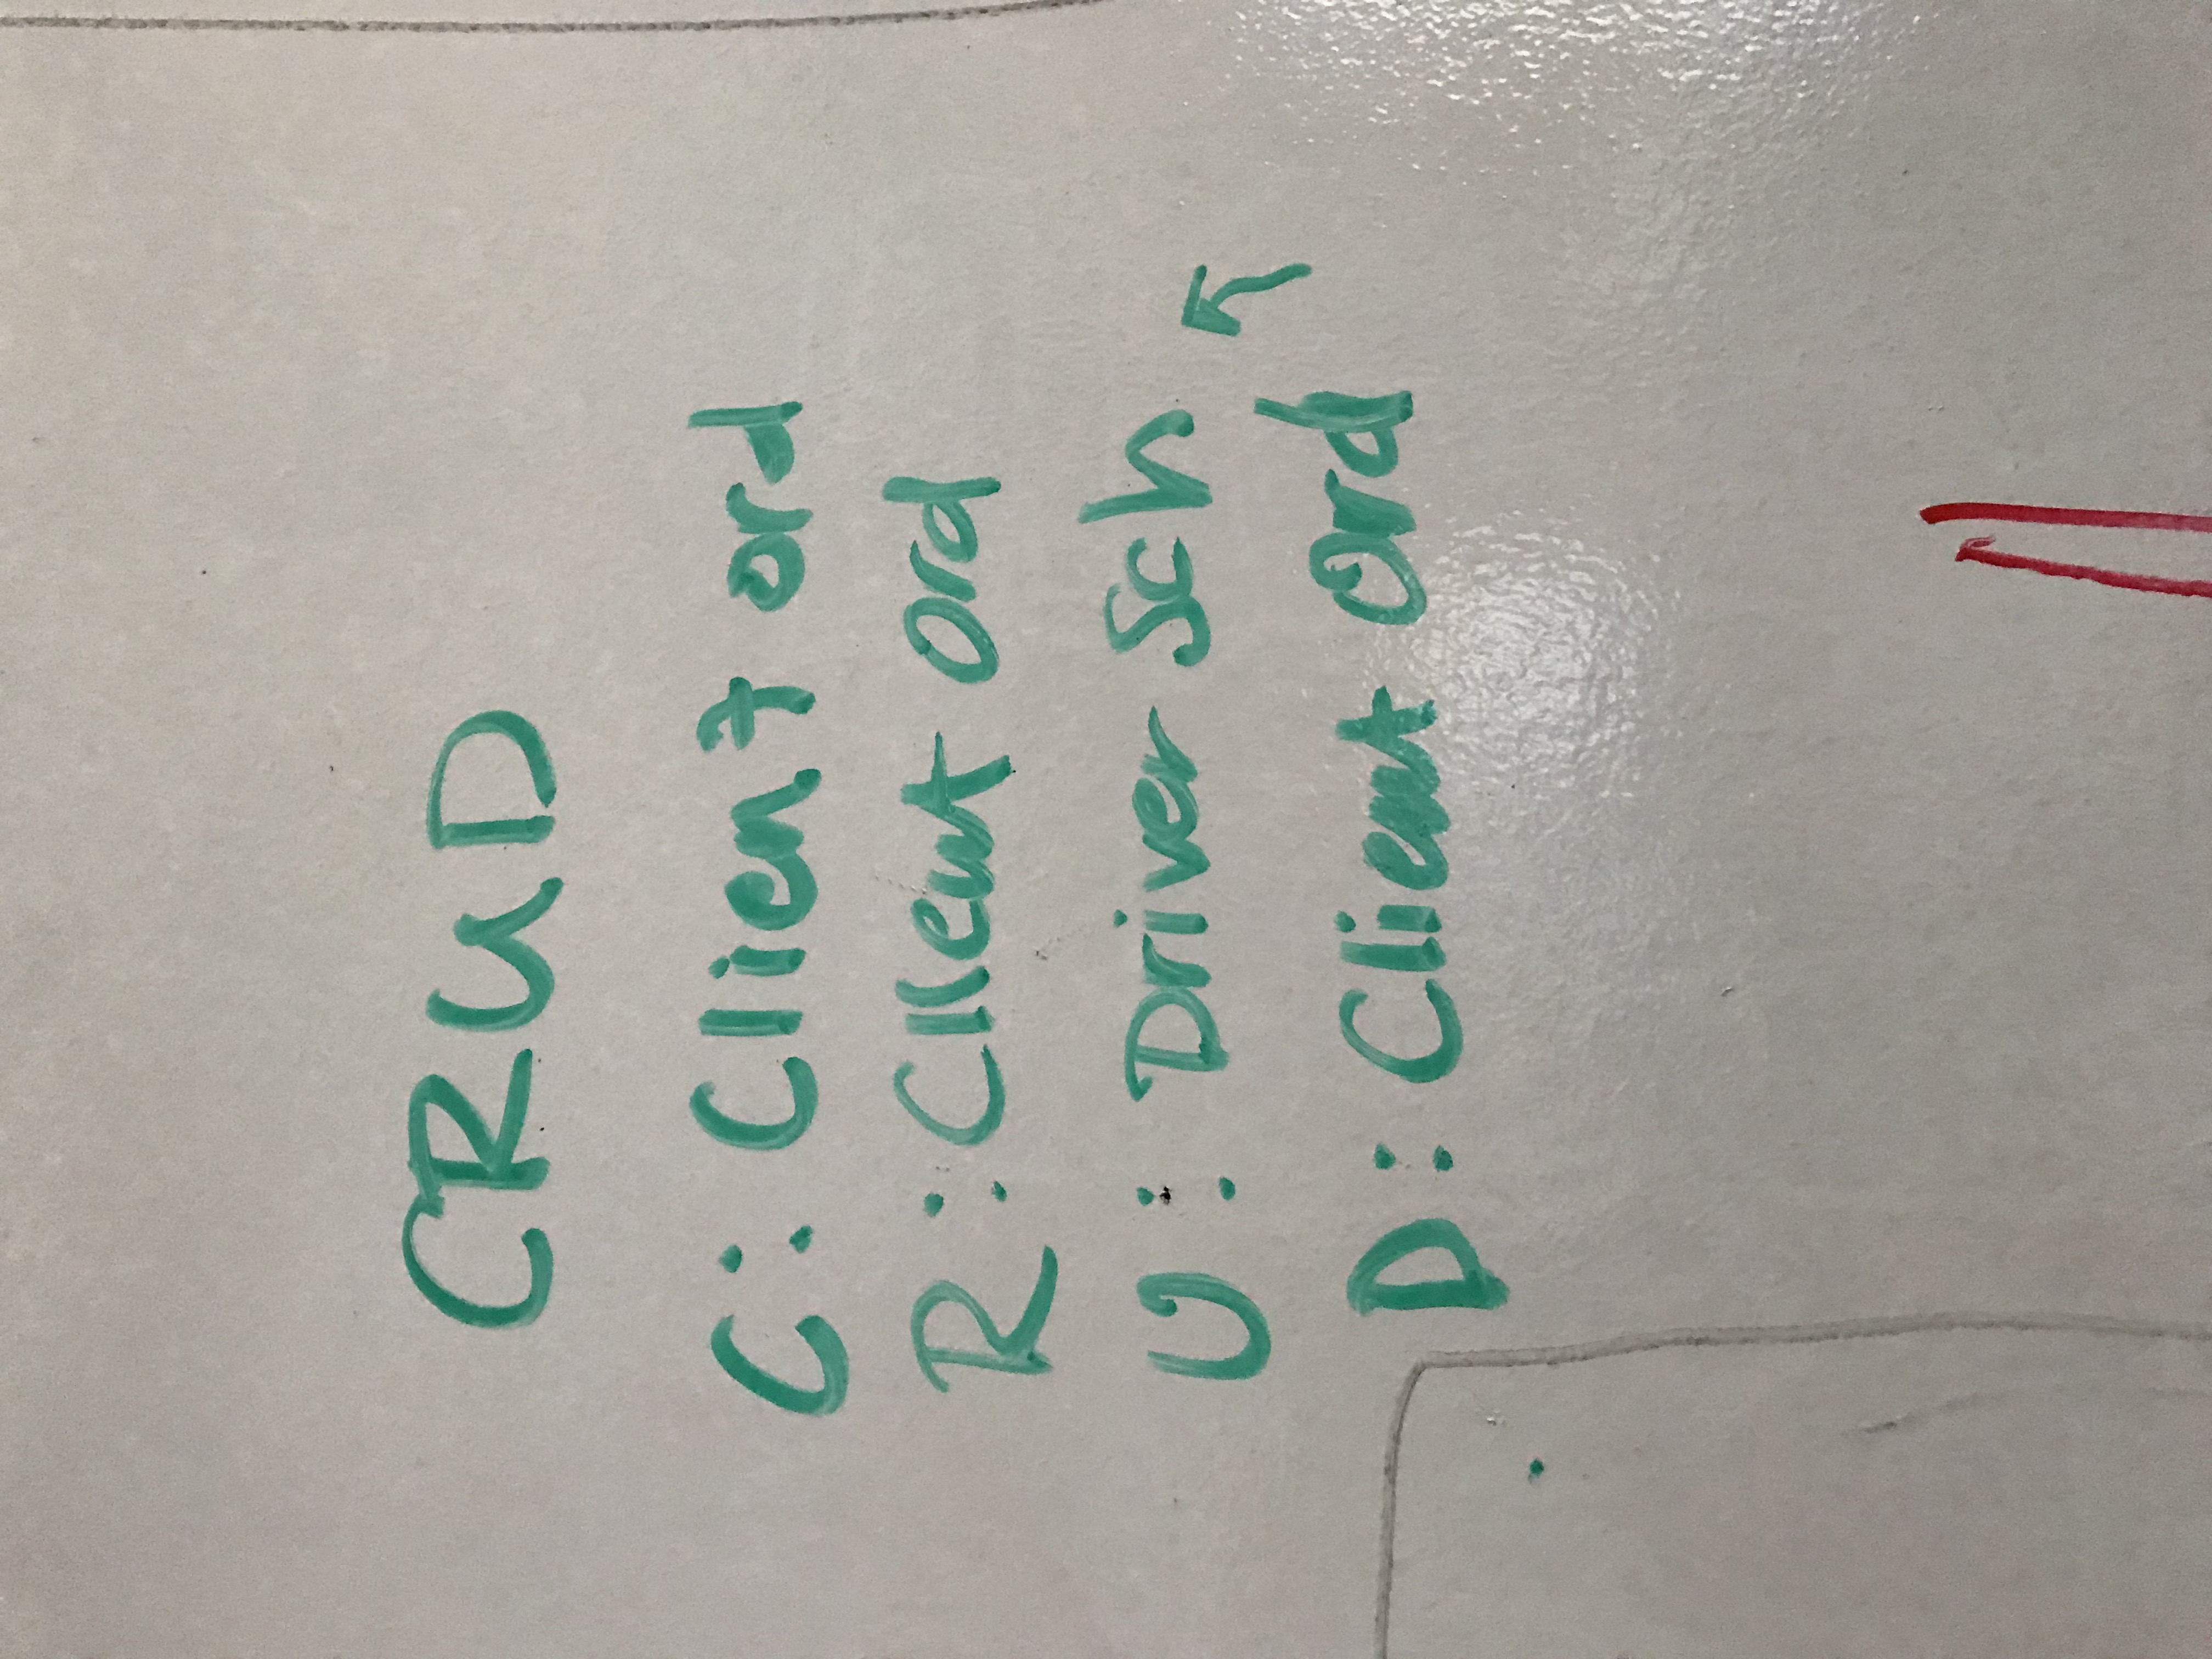 CRUD
C: Client ord
R: Client Ord
U: Driver Sch
D: Client Ord